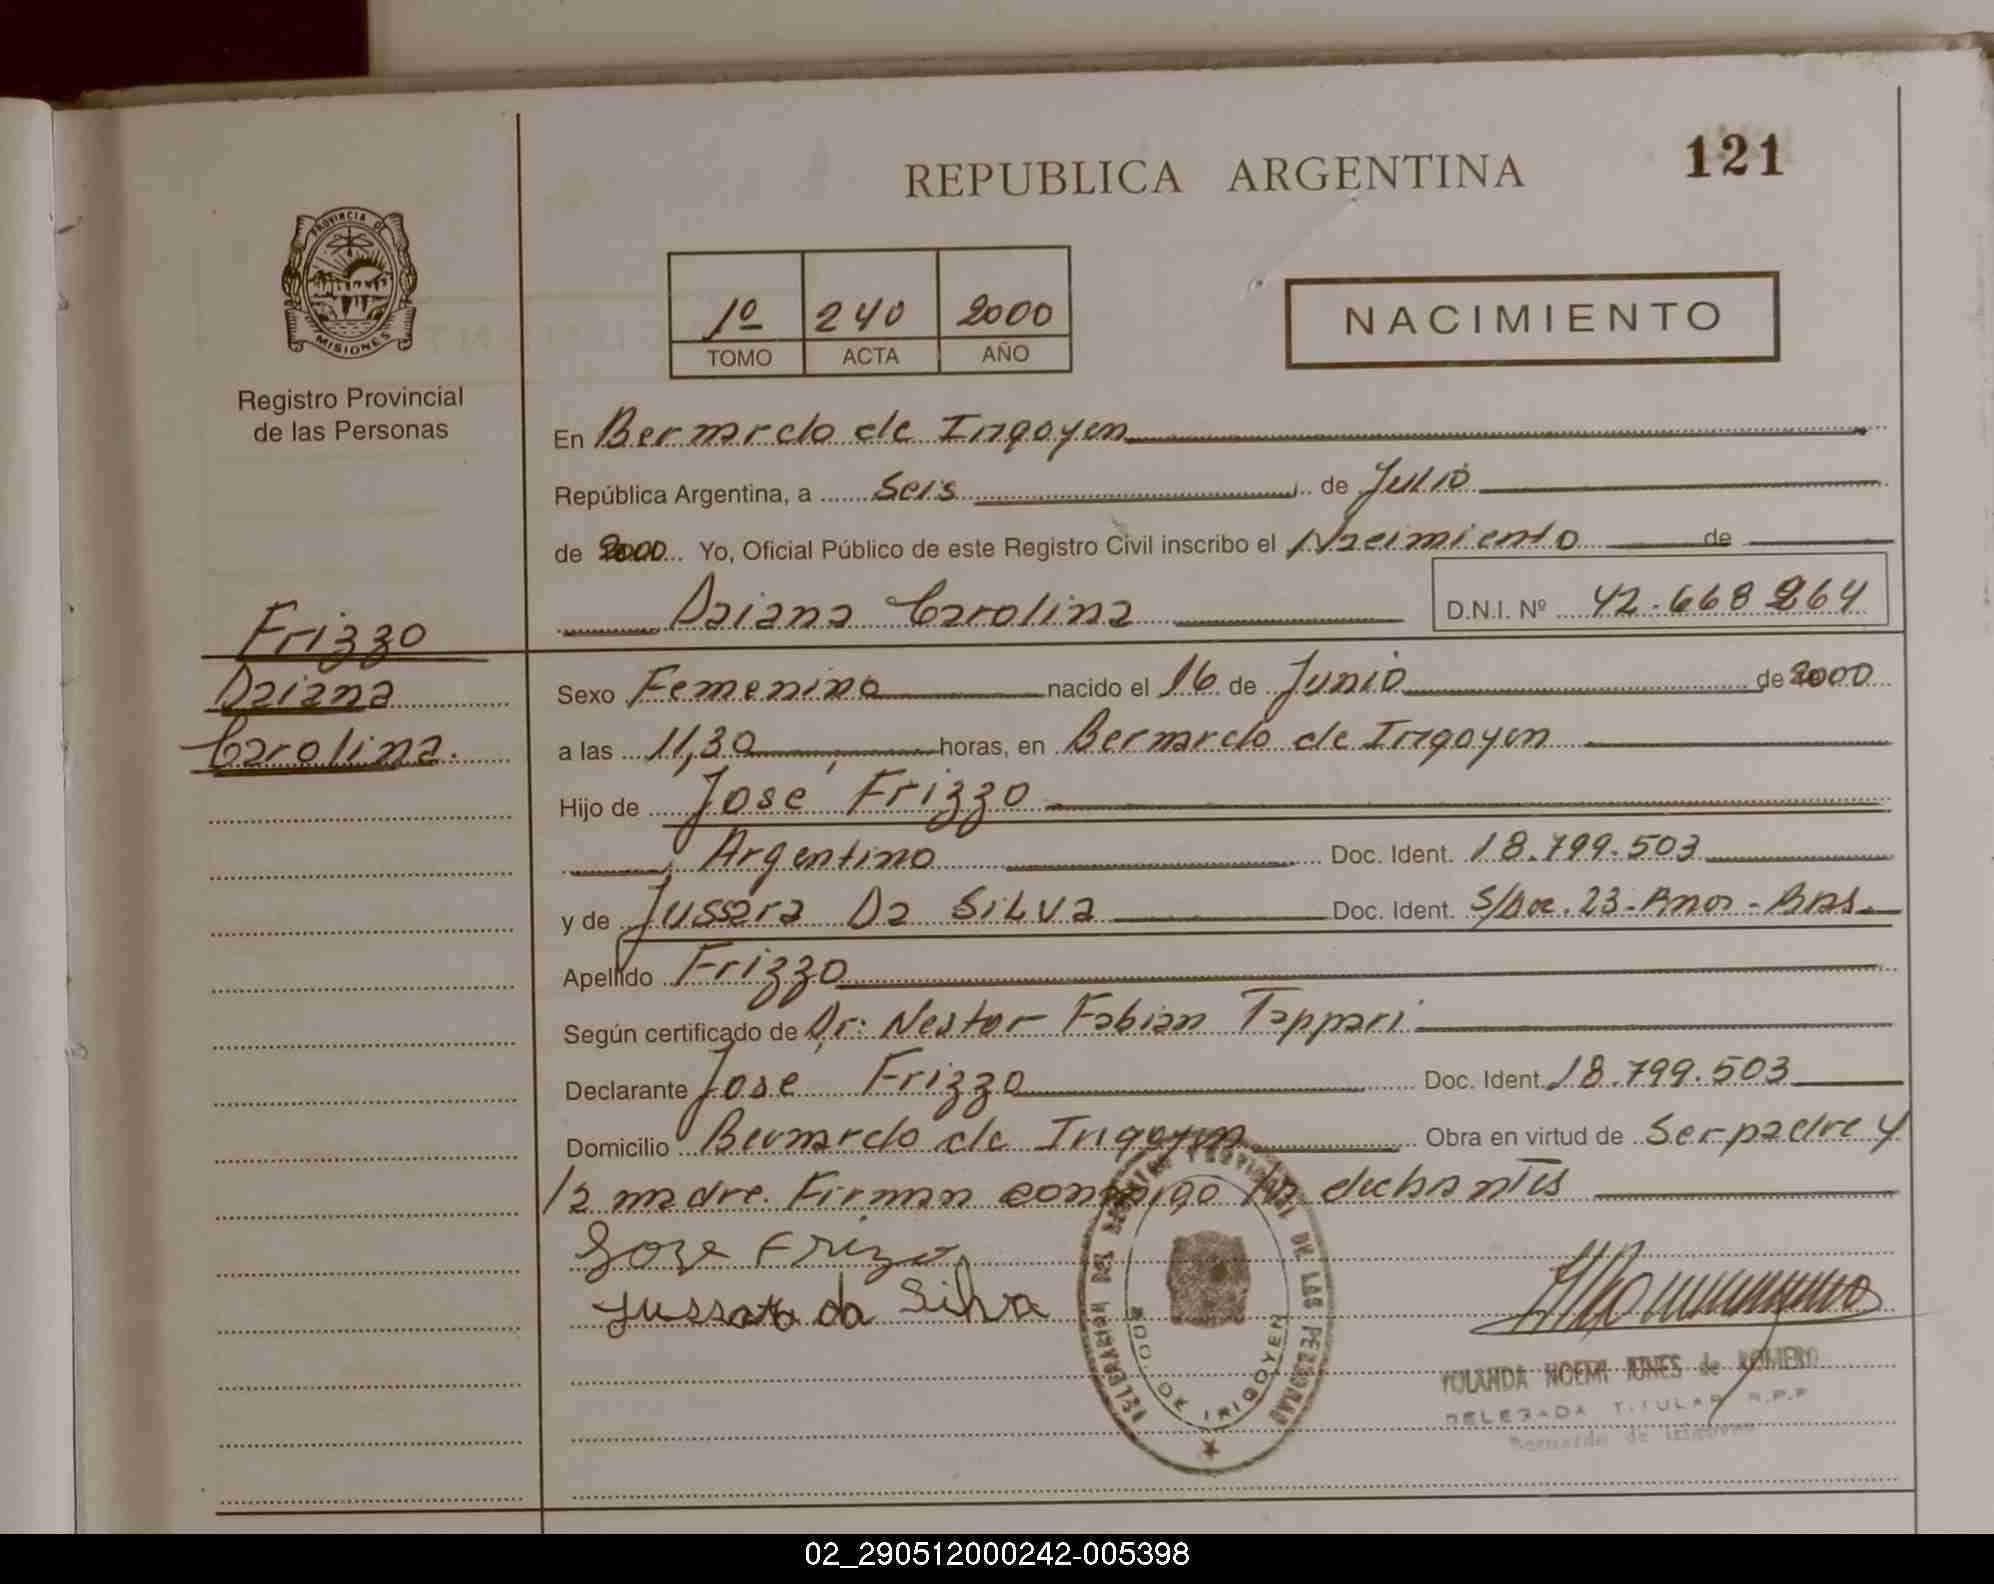 REPUBLICA ARGENTINA
121
PROVINCIA DE
MISIONES
Registro Provincial
de las Personas
1º 240 2000
TOMO ACTA AÑO
NACIMIENTO
En Bernardo de Irigoyen
República Argentina, a Seis de Julio
de 2000 Yo, Oficial Público de este Registro Civil inscribo el Nacimiento de
Daiana Carolina D.N.I. Nº 42.668.264
Frizzo
Daiana
Carolina.
Sexo Femenino nacido el 16 de Junio de 2000
a las 11,30 horas, en Bernardo de Irigoyen
Hijo de José Frizzo
Argentino Doc. Ident. 18.799.503
y de Jussara Da Silva Doc. Ident. S/Doc. 23-Anos-Bras.
Apellido Frizzo
Según certificado de Dr: Nestor Fabian Tappari
Declarante Jose Frizzo Doc. Ident. 18.799.503
Domicilio Bernardo de Irigoyen Obra en virtud de Ser padre y
la madre. Firman conmigo los declarantes
Joze Frizo
Jussara da Silva
DE LAS PERSONAS
BDO. DE IRIGOYEN
YOLANDA NOEMI de ROMERO
DELEGADA TITULAR R.P.P
Bernardo de Irigoyen
02_290512000242-005398